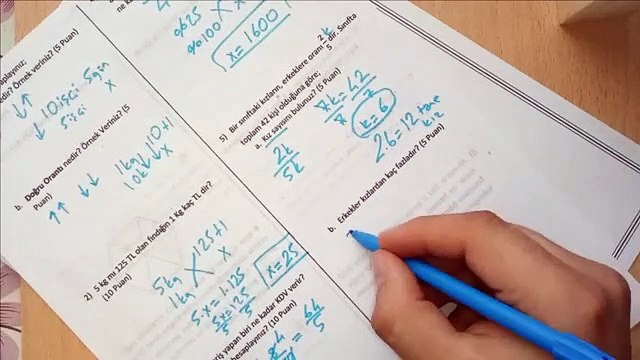 %25
%100
x=1600
5) Bir sınıftaki kızların, erkeklere oranı 2k/5 dir. Sınıfta
toplam 42 kişi olduğuna göre;
a. Kız sayısını bulunuz? (5 Puan)
2k
5k
7k=42
7 7
k=6
2k=12 tane
kız
b. Erkekler kızlardan kaç fazladır? (5 Puan)
nedir? Örnek veriniz? (5 Puan)
↓↑
10 işçi 5 gün
↓ 5 işçi x
b. Doğru Orantı nedir? Örnek Veriniz? (5
Puan)
↑↑ ↓↓
1kg 10 tl
10k x
2) 5 kg mı 125 TL olan fındığın 1 Kg kaç TL dir?
(10 Puan)
5kg 125 tl
1kg x
5.x=1.125
5x=125
5 5
x=25
yapan biri ne kadar KDV verir?
hesaplayınız? (10 Puan)
= 64
5